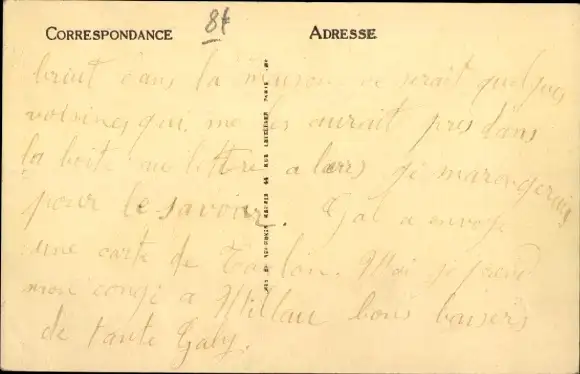 8f
CORRESPONDANCE
ADRESSE
bruit dans la maison ce serait quelques
voisines qui me les aurait pris dans
la boite au lettre alors je
pour le savoir. Gal a envoye
une carte de Toulon. Moi je prend
mon congé a Millau bons baisers
de tante Gaby.